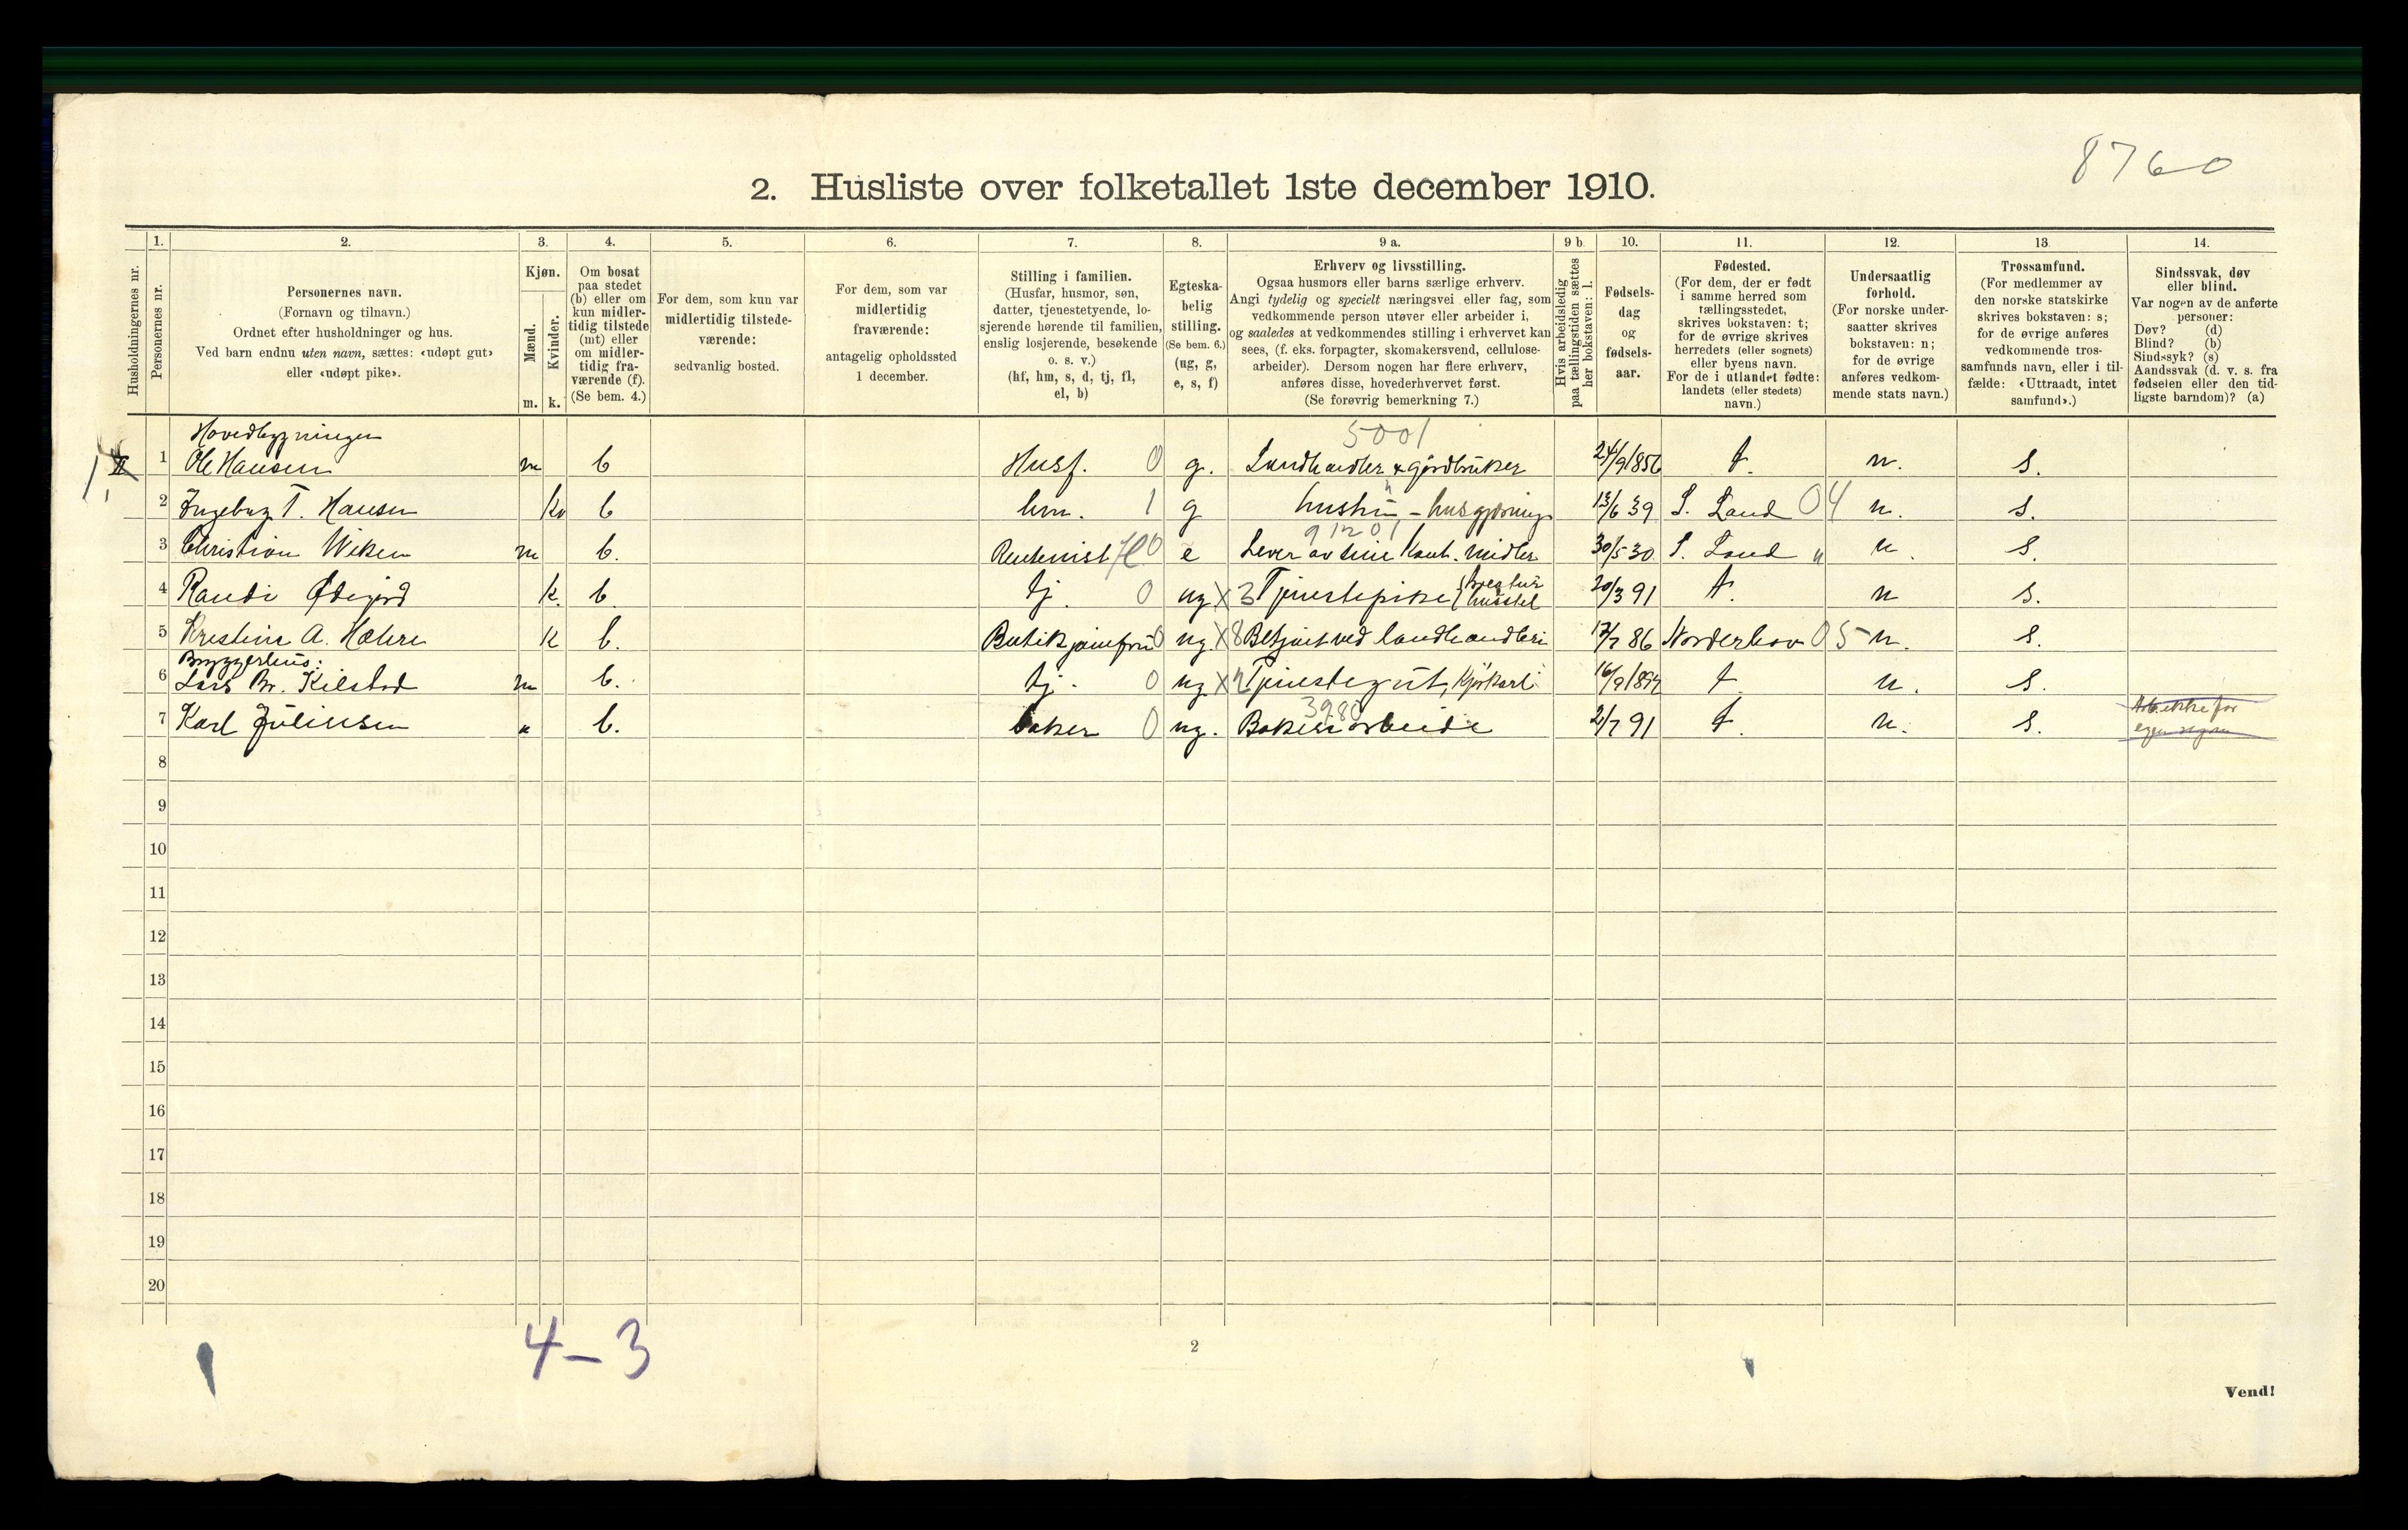 8760
2. Husliste over folketallet 1ste december 1910.
Husholdningernes nr.
1.
Personernes nr.
2.
Personernes navn.
(Fornavn og tilnavn.)
Ordnet efter husholdninger og hus.
Ved barn endnu uten navn, sættes: «udøpt gut»
eller «udøpt pike».
3.
Kjøn.
Mænd.
Kvinder.
m. k.
4.
Om bosat
paa stedet
(b) eller om
kun midler-
tidig tilstede
(mt) eller
om midler-
tidig fra-
værende (f).
(Se bem. 4.)
5.
For dem, som kun var
midlertidig tilstede-
værende:
sedvanlig bosted.
6.
For dem, som var
midlertidig
fraværende:
antagelig opholdssted
1 december.
7.
Stilling i familien.
(Husfar, husmor, søn,
datter, tjenestetyende, lo-
sjerende hørende til familien,
enslig losjerende, besøkende
o. s. v.)
(hf, hm, s, d, tj, fl,
el, b)
8.
Egteska-
belig
stilling.
(Se bem. 6.)
(ug, g,
e, s, f)
9 a.
Erhverv og livsstilling.
Ogsaa husmors eller barns særlige erhverv.
Angi tydelig og specielt næringsvei eller fag, som
vedkommende person utøver eller arbeider i,
og saaledes at vedkommendes stilling i erhvervet kan
sees, (f. eks. forpagter, skomakersvend, cellulose-
arbeider). Dersom nogen har flere erhverv,
anføres disse, hovederhvervet først.
(Se forøvrig bemerkning 7.)
9 b.
Hvis arbeidsledig
paa tællingstiden sættes
her bokstaven: l.
10.
Fødsels-
dag
og
fødsels-
aar.
11.
Fødested.
(For dem, der er født
i samme herred som
tællingsstedet,
skrives bokstaven: t;
for de øvrige skrives
herredets (eller sognets)
eller byens navn.
For de i utlandet fødte:
landets (eller stedets)
navn.)
12.
Undersaatlig
forhold.
(For norske under-
saatter skrives
bokstaven: n;
for de øvrige
anføres vedkom-
mende stats navn.)
13.
Trossamfund.
(For medlemmer av
den norske statskirke
skrives bokstaven: s;
for de øvrige anføres
vedkommende tros-
samfunds navn, eller i til-
fælde: «Uttraadt, intet
samfund».)
14.
Sindssvak, døv
eller blind.
Var nogen av de anførte
personer:
Døv? (d)
Blind? (b)
Sindssyk? (s)
Aandssvak (d. v. s. fra
fødselen eller den tid-
ligste barndom)? (a)
Hovedbygningen 5001
1 Ole Hansen m b Husf. 0 g. Landhandler & gårdbruker 24/9 1856 t. n. s.
2 Ingebug T. Hansen Kv b hm. 1 g hustru - husgjerning 13/6 39 S. Land 04 n. s.
91201
3 Christian Wiken m b. Rentenist 0 e Lever av sine Kont. midler 30/5 30. S. Land " n. s.
4 Randi Ødegård k. b. tj. 0 ug X 3 Tjenestepike husstel 20/3 91 t. n s.
5 Kristine A. Hære k b. Butikjomfru 0 ug. X 8 Betjent ved landhandleri 17/7 86 Norderhov 05 n. s.
Bryggerhus:
6 Lars Br. Kilstad m b. tj. 0 ug X 2 Tjenestegut, Kjørkarl 16/9 1894 t n. s.
3980
7 Karl Juliussen " b. baker 0 ug. Bakeriarbeide 2/7 91 t. n. s. Arb. ikke for egen regn
8
9
10
11
12
13
14
15
16
17
18
19
20
4-3
2
Vend!